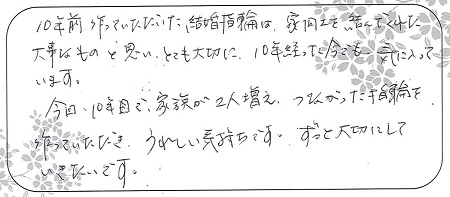 10年前 作っていただいた結婚指輪は、家同士を結んでくれた
大事なものと思い、とても大切に、10年経った今でも 気に入って
います。
今回、10年目で、家族が2人増え、つながった指輪を
作っていただき うれしい気持ちです。 ずっと大切にして
いきたいです。